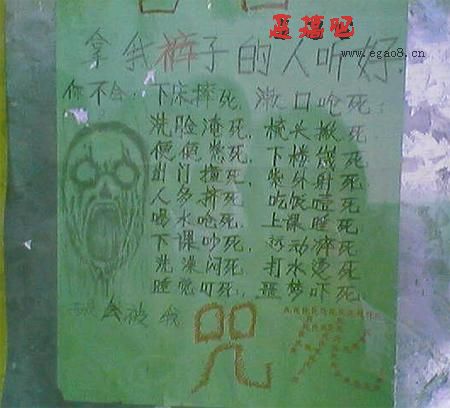 恶搞吧
www.egao8.cn
拿我裤子的人听好.
你不会:下床摔死,漱口呛死,
洗脸淹死,梳头死
便便死,下楼崴死
出门撞死,紫外射死
人多挤死,吃饭噎死
喝水呛死,上课睡死
下课吵死,运动猝死
洗澡闷死,打水烫死
睡觉叮死,噩梦吓死
会被我 咒死